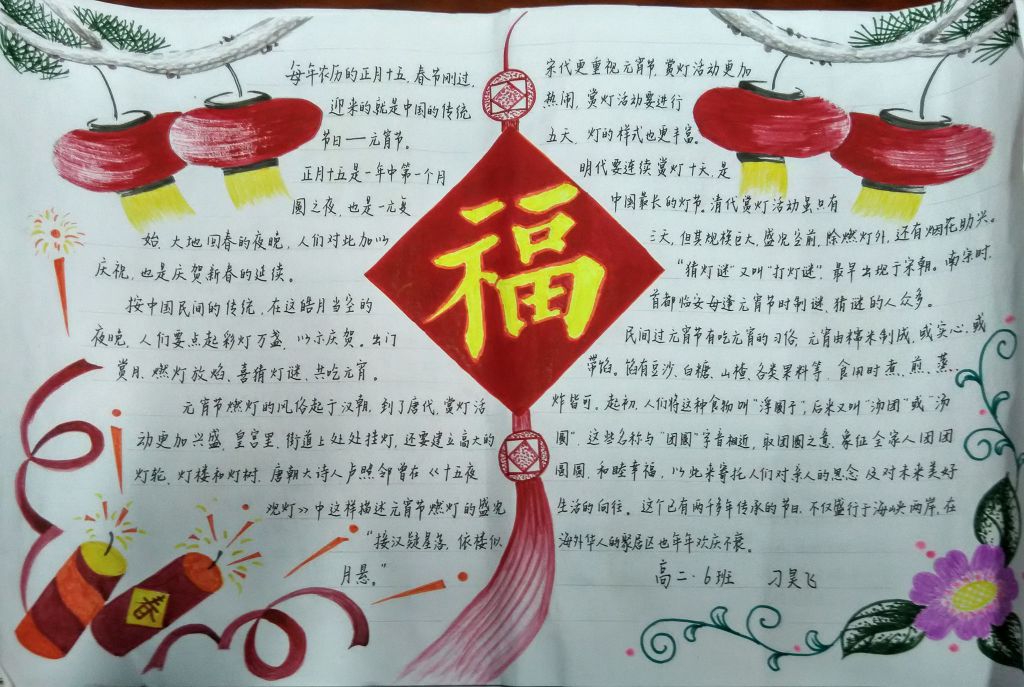 每年农历的正月十五,春节刚过,
迎来的就是中国的传统
节日——元宵节。
正月十五是一年中第一个月
圆之夜,也是一元复
始,大地回春的夜晚,人们对此加以
庆祝,也是庆贺新春的延续。
按中国民间的传统,在这皓月当空的
夜晚,人们要点起彩灯万盏,以示庆贺。出门
赏月、燃灯放焰、喜猜灯谜、共吃元宵。
元宵节燃灯的风俗起于汉朝,到了唐代,赏灯活
动更加兴盛,皇宫里、街道上处处挂灯,还要建立高大的
灯轮、灯楼和灯树,唐朝大诗人卢照邻曾在《十五夜
观灯》中这样描述元宵节燃灯的盛况
“接汉疑星落,依楼似
月悬。”
福
春
宋代更重视元宵节,赏灯活动更加
热闹,赏灯活动要进行
五天,灯的样式也更丰富。
明代要连续赏灯十天,是
中国最长的灯节。清代赏灯活动虽只有
三天,但其规模巨大,盛况空前,除燃灯外,还有烟花助兴。
“猜灯谜”又叫“打灯谜”,最早出现于宋朝。南宋时,
首都临安每逢元宵节时制谜,猜谜的人众多。
民间过元宵节有吃元宵的习俗,元宵由糯米制成,或实心,或
带馅。馅有豆沙、白糖、山楂、各类果料等,食用时煮、煎、蒸、
炸皆可。起初,人们将这种食物叫“浮圆子”,后来又叫“汤团”或“汤
圆”,这些名称与“团圆”字音相近,取团圆之意,象征全家人团团
圆圆,和睦幸福,以此来寄托人们对亲人的思念及对未来美好
生活的向往。这个已有两千多年传承的节日,不仅盛行于海峡两岸,在
海外华人的聚居区也年年欢庆不衰。
高二·6班 刁昊飞